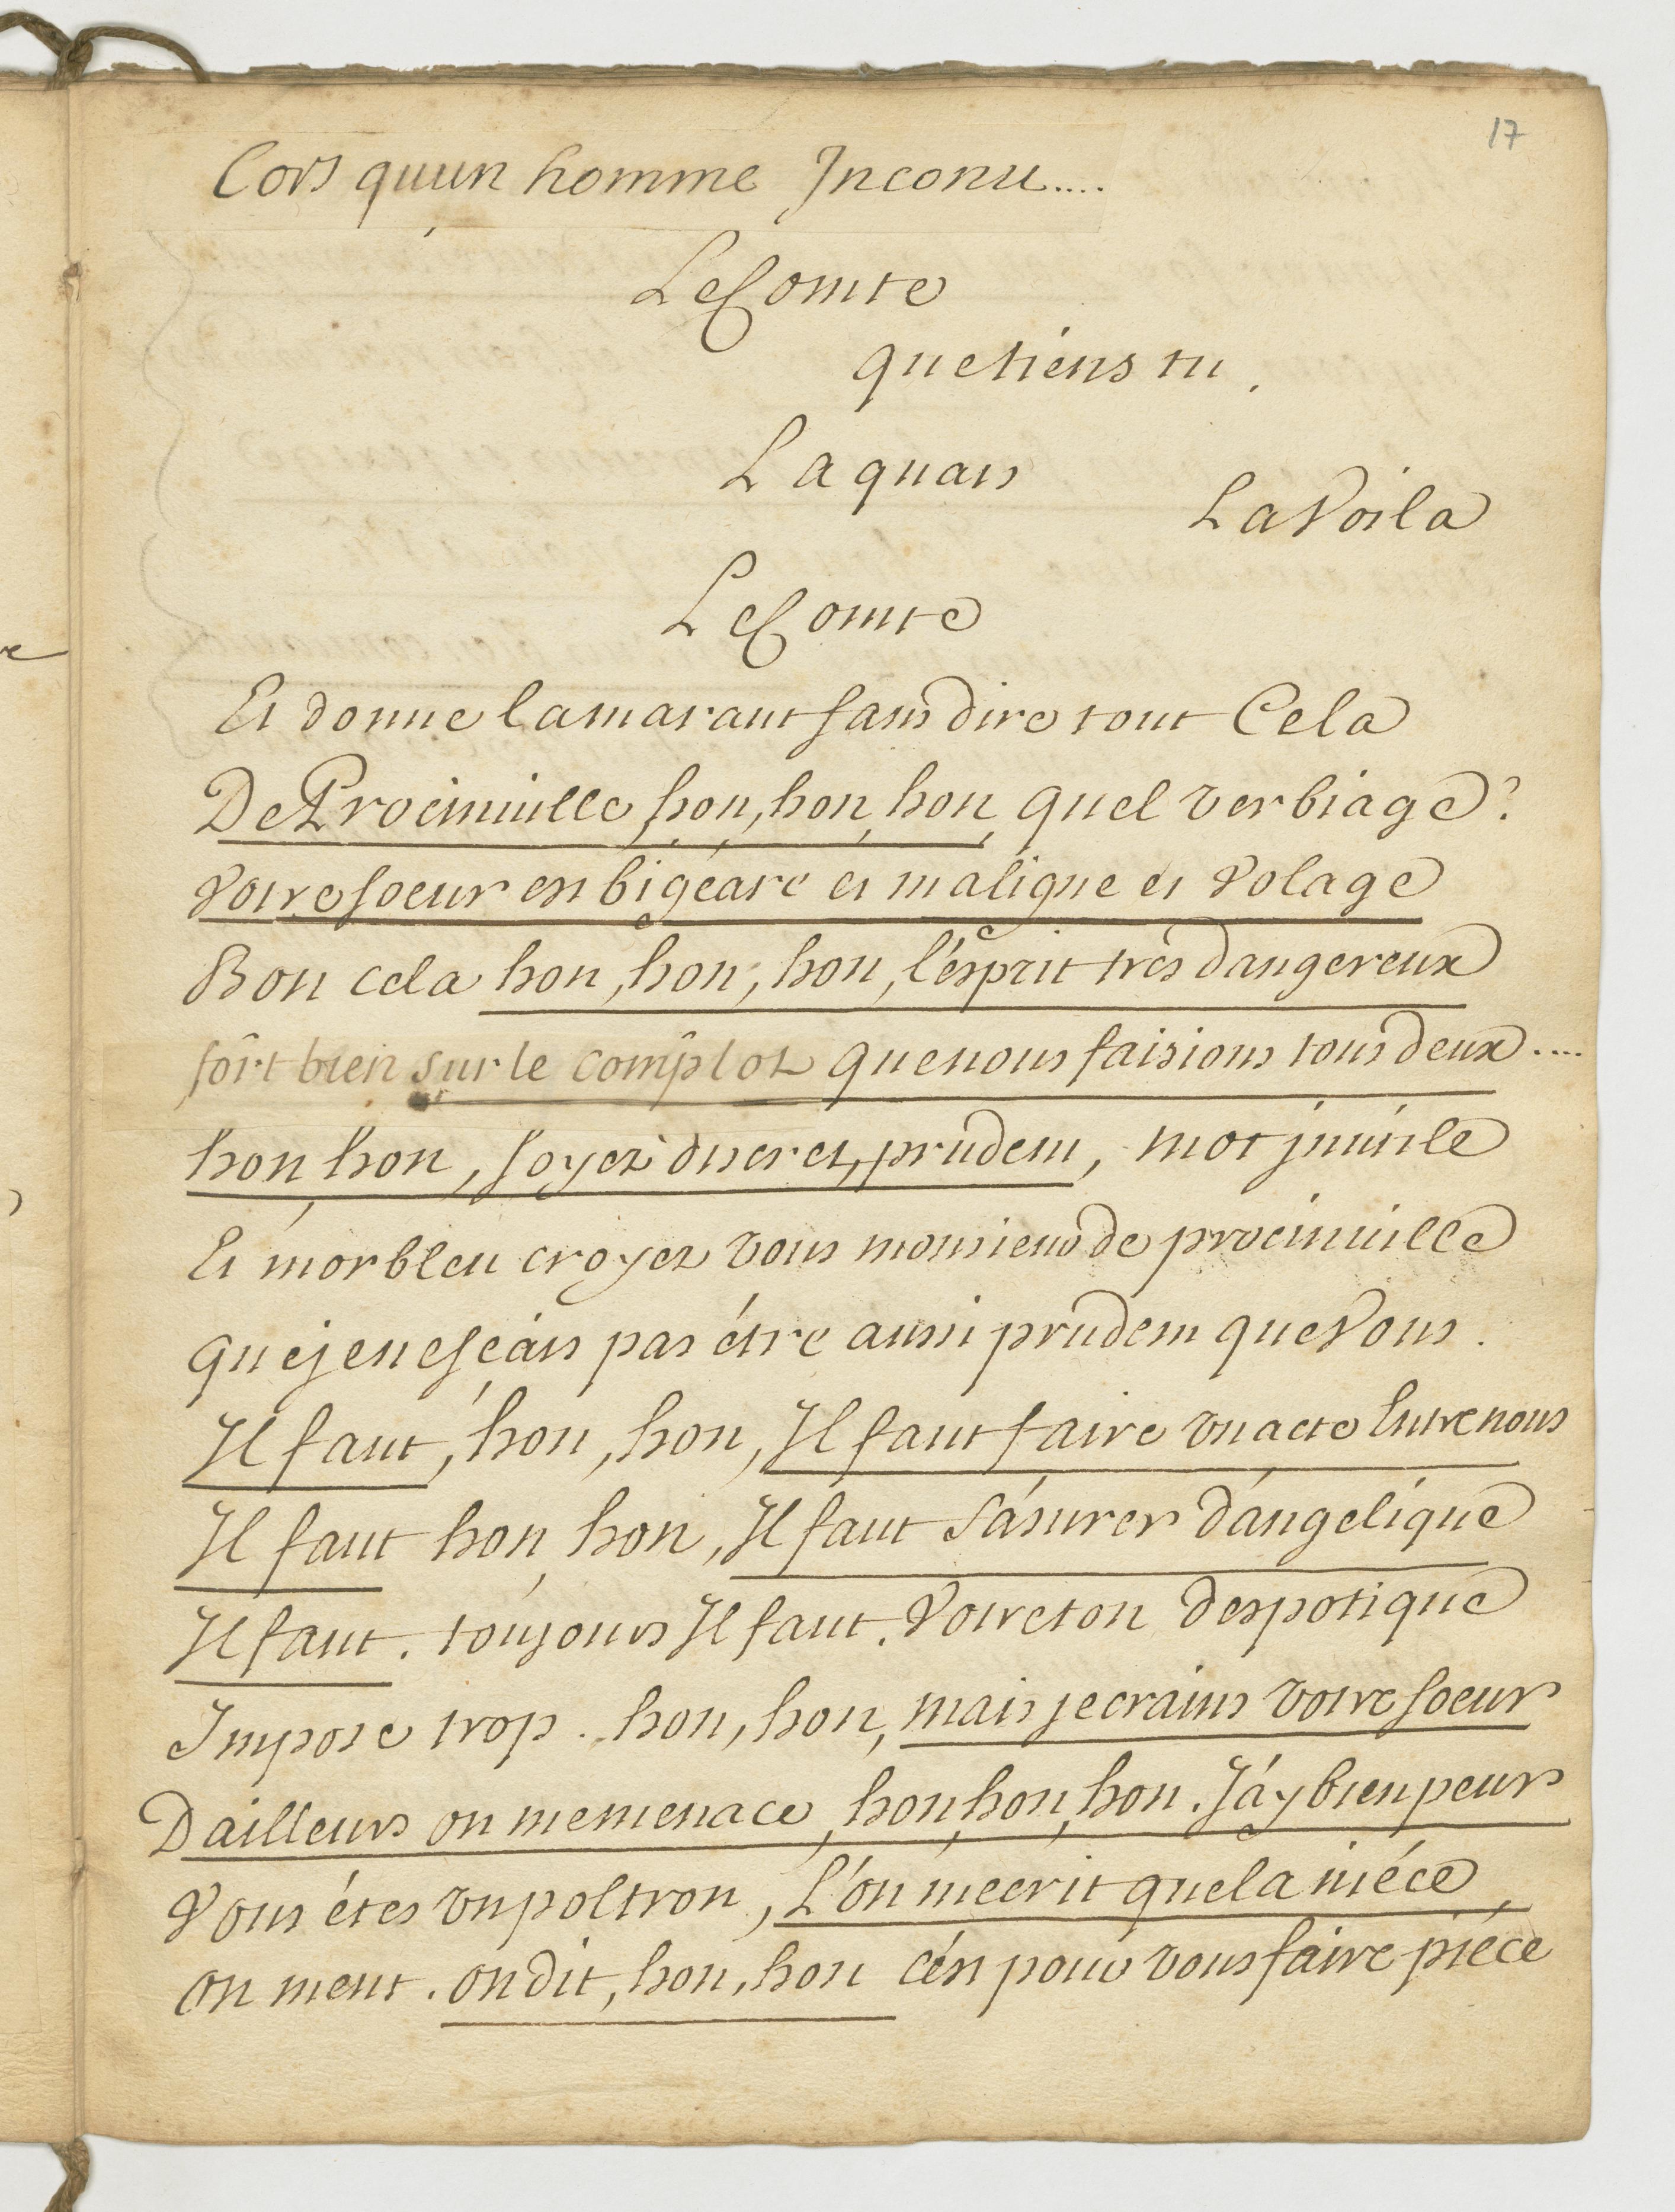 17
Lors qu'un homme Inconu....
Le Comte
que tiens tu.
Laquais
La Voila
Le Comte
Et donne la maraut sans dire tout Cela
De Procinville, hon, hon, hon, quel verbiage?
Votre soeur est bigeare et maligne et Volage
Bon cela hon, hon, hon, l'ésprit tres dangereux
fôrt bien sur le complot que nous faisions tous deux....
hon, hon, soyez discret, prudent, mot jnutile
Et morbleu croyez vous monsieur de procinville
que je ne sçais pas étre aussi prudent que Vous.
Il faut, hon, hon, Il faut faire un acte Entre nous
Il faut hon, hon, Il faut s'ásurer d'ángelique
Il faut. toujours Il faut. Votre ton despotique
Impose trop. hon, hon, mais je crains votre soeur
Dailleurs on me menace, hon, hon, hon. J'áy bien peur
Vous étes un poltron, L'ón mecrit que la niéce,
on ment. on dit, hon, hon c'ést pour vous faire piéce